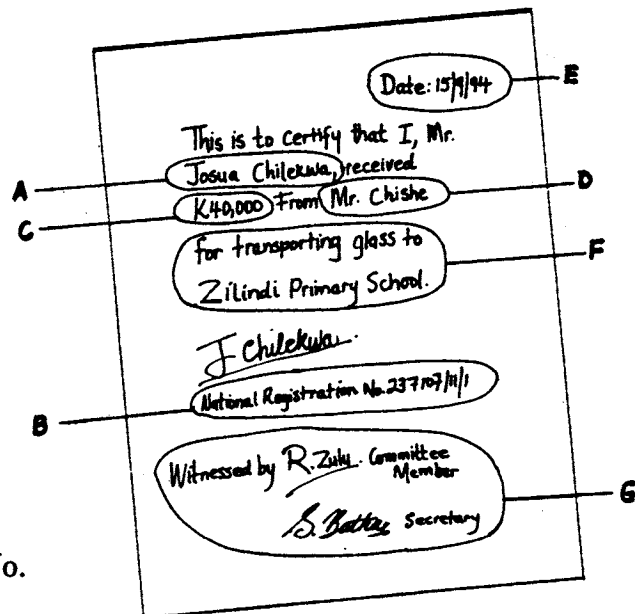 Date: 15/9/94
E
This is to certify that I, Mr.
A
Josua Chilekwa, received
C
K40,000 From Mr. Chishe
D
for transporting glass to
Zilindi Primary School.
F
J Chilekwa
B
National Registration No. 237107/11/1
Witnessed by R. Zulu. Committee
Member
G
Secretary
o.